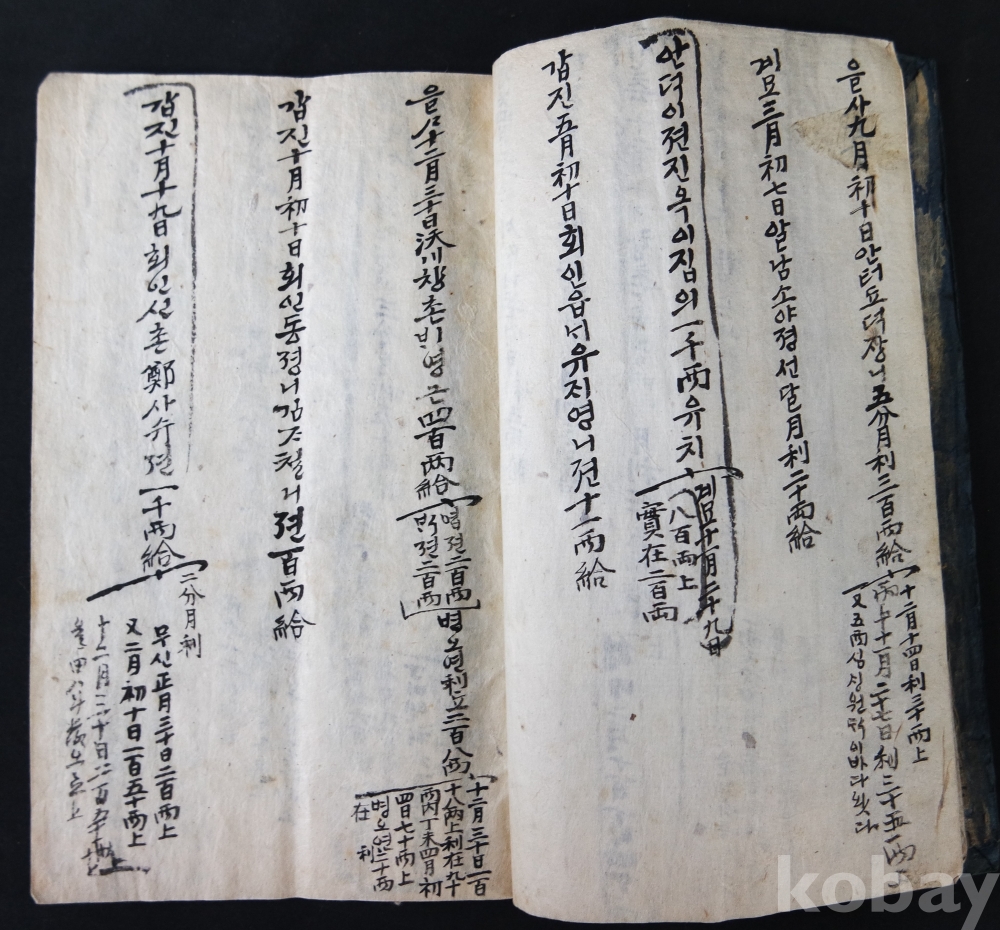 을사九月初十日안터됴덕장니五分月利三百兩給
十二月十四日利三十兩上
丙午十一月二十七日利三十五兩
又五兩심싱원되이바다왓다
계묘三月初七日알남소야졍션달月利二十兩給
안덕이젼진옥이집의一千兩유치
계묘十一月二十九日
八百兩上
實在二百兩
갑진五月初十日회인읍너유지영니젼十一兩給
을사十二月三十日沃川챵촌빈영근四百兩給
병오연利立二百八兩
十二月三十日一百
十八兩上利在九十
兩内丁未四月初
四日七十兩上
병오연二十兩
在利
갑진十月初十日회인동졍니김조쳘니젼一百兩給
갑진十月十九日회인션촌鄭사슈젼一千兩給
二分月利
무신正月三十日二百兩上
又二月初十日一百五十兩上
十二月三十日二百五十
kobay